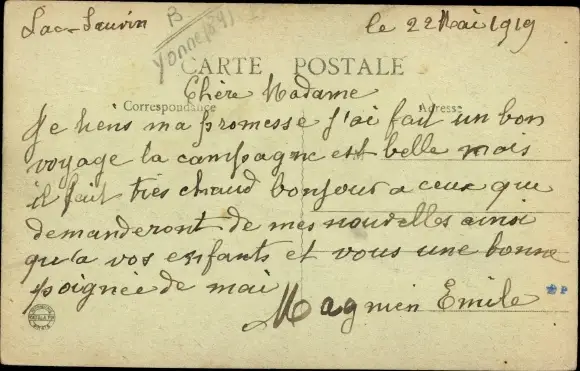 Lac-Sauvin le 22 Mai 1919
B
Yonne (89)
CARTE POSTALE
Chère Madame
Correspondance Adresse
Je tiens ma promesse j'ai fait un bon
voyage la campagne est belle mais
il fait très chaud bonjour a ceux que
demanderont de mes nouvelles ainsi
qu'a vos enfants et vous une bonne
poignée de mai
Magnien Emile